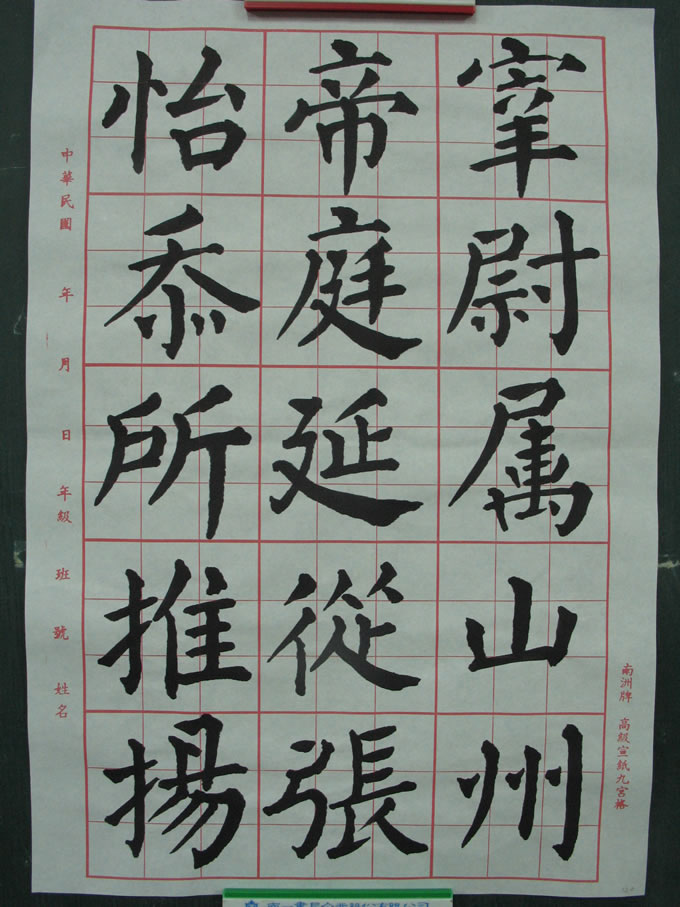 宰尉属山州
帝庭延從張
怡忝所推揚
中華民國 年 月 日 年級 班 號 姓名
南洲牌 高級宣紙九宮格